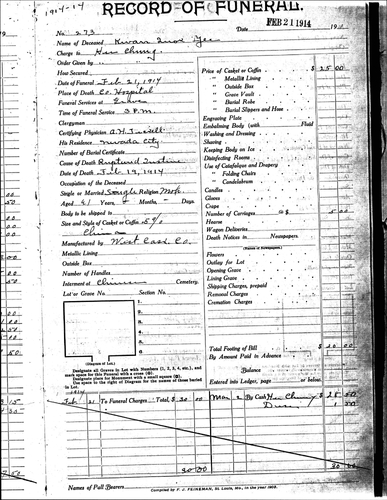 1914-14
RECORD OF FUNERAL.
No. 273 Date FEB 21 1914 191
Name of Deceased Kwan
Charge to Hun Chung
Order Given by "
Hour Secured
Date of Funeral Feb. 21, 1914
Place of Death Co. Hospital
Funeral Services at Grave
Time of Funeral Service 3 P.M.
Clergyman
Certifying Physician A.H.
His Residence Nevada City
Number of Burial Certificate
Cause of Death Ruptured Intestine
Date of Death Feb 19, 1914
Occupation of the Deceased
Single or Married Single Religion
Aged 41 Years, Months - Days.
Body to be shipped to
Size and Style of Casket or Coffin 5/9
China
Manufactured by West Cask. Co.
Metallic Lining
Outside Box
Number of Handles
Interment at Chinese Cemetery.
Lot or Grave No. Section No.
1.
2.
3.
4.
5.
6.
(Diagram of Lot.)
Designate all Graves in Lot with Numbers (1, 2, 3, 4, etc.), and mark space for this Funeral with a cross
Designate place for Monument with a small square
Use space to the right of Diagram for the names of those buried in Lot.
Price of Casket or Coffin $ 25 00
" Metallic Lining
" Outside Box
" Grave Vault
" Burial Robe
" Burial Slippers and Hose
Engraving Plate
Embalming Body (with Fluid
Washing and Dressing
Shaving
Keeping Body on Ice
Disinfecting Rooms
Use of Catafalque and Drapery
" Folding Chairs
" Candelabrum
Candles
Gloves
Crape
Number of Carriages @ $ 5 00
Hearse
Wagon Deliveries
Death Notices in Newspapers.
(Names of Newspapers)
Flowers
Outlay for Lot
Opening Grave
Lining Grave
Shipping Charges, prepaid
Removal Charges
Cremation Charges
Total Footing of Bill $ 30 00
By Amount Paid in Advance
Balance
Entered into Ledger, page or below.
1914
Feb. 21 To Funeral Charges Total, $ 30 00 Mar 2 By Cash Hun Chung $ 28 50
30 00 30 00
Names of Pall Bearers
Compiled by F. J. FEINEMAN, St. Louis, Mo., in the year 1902.